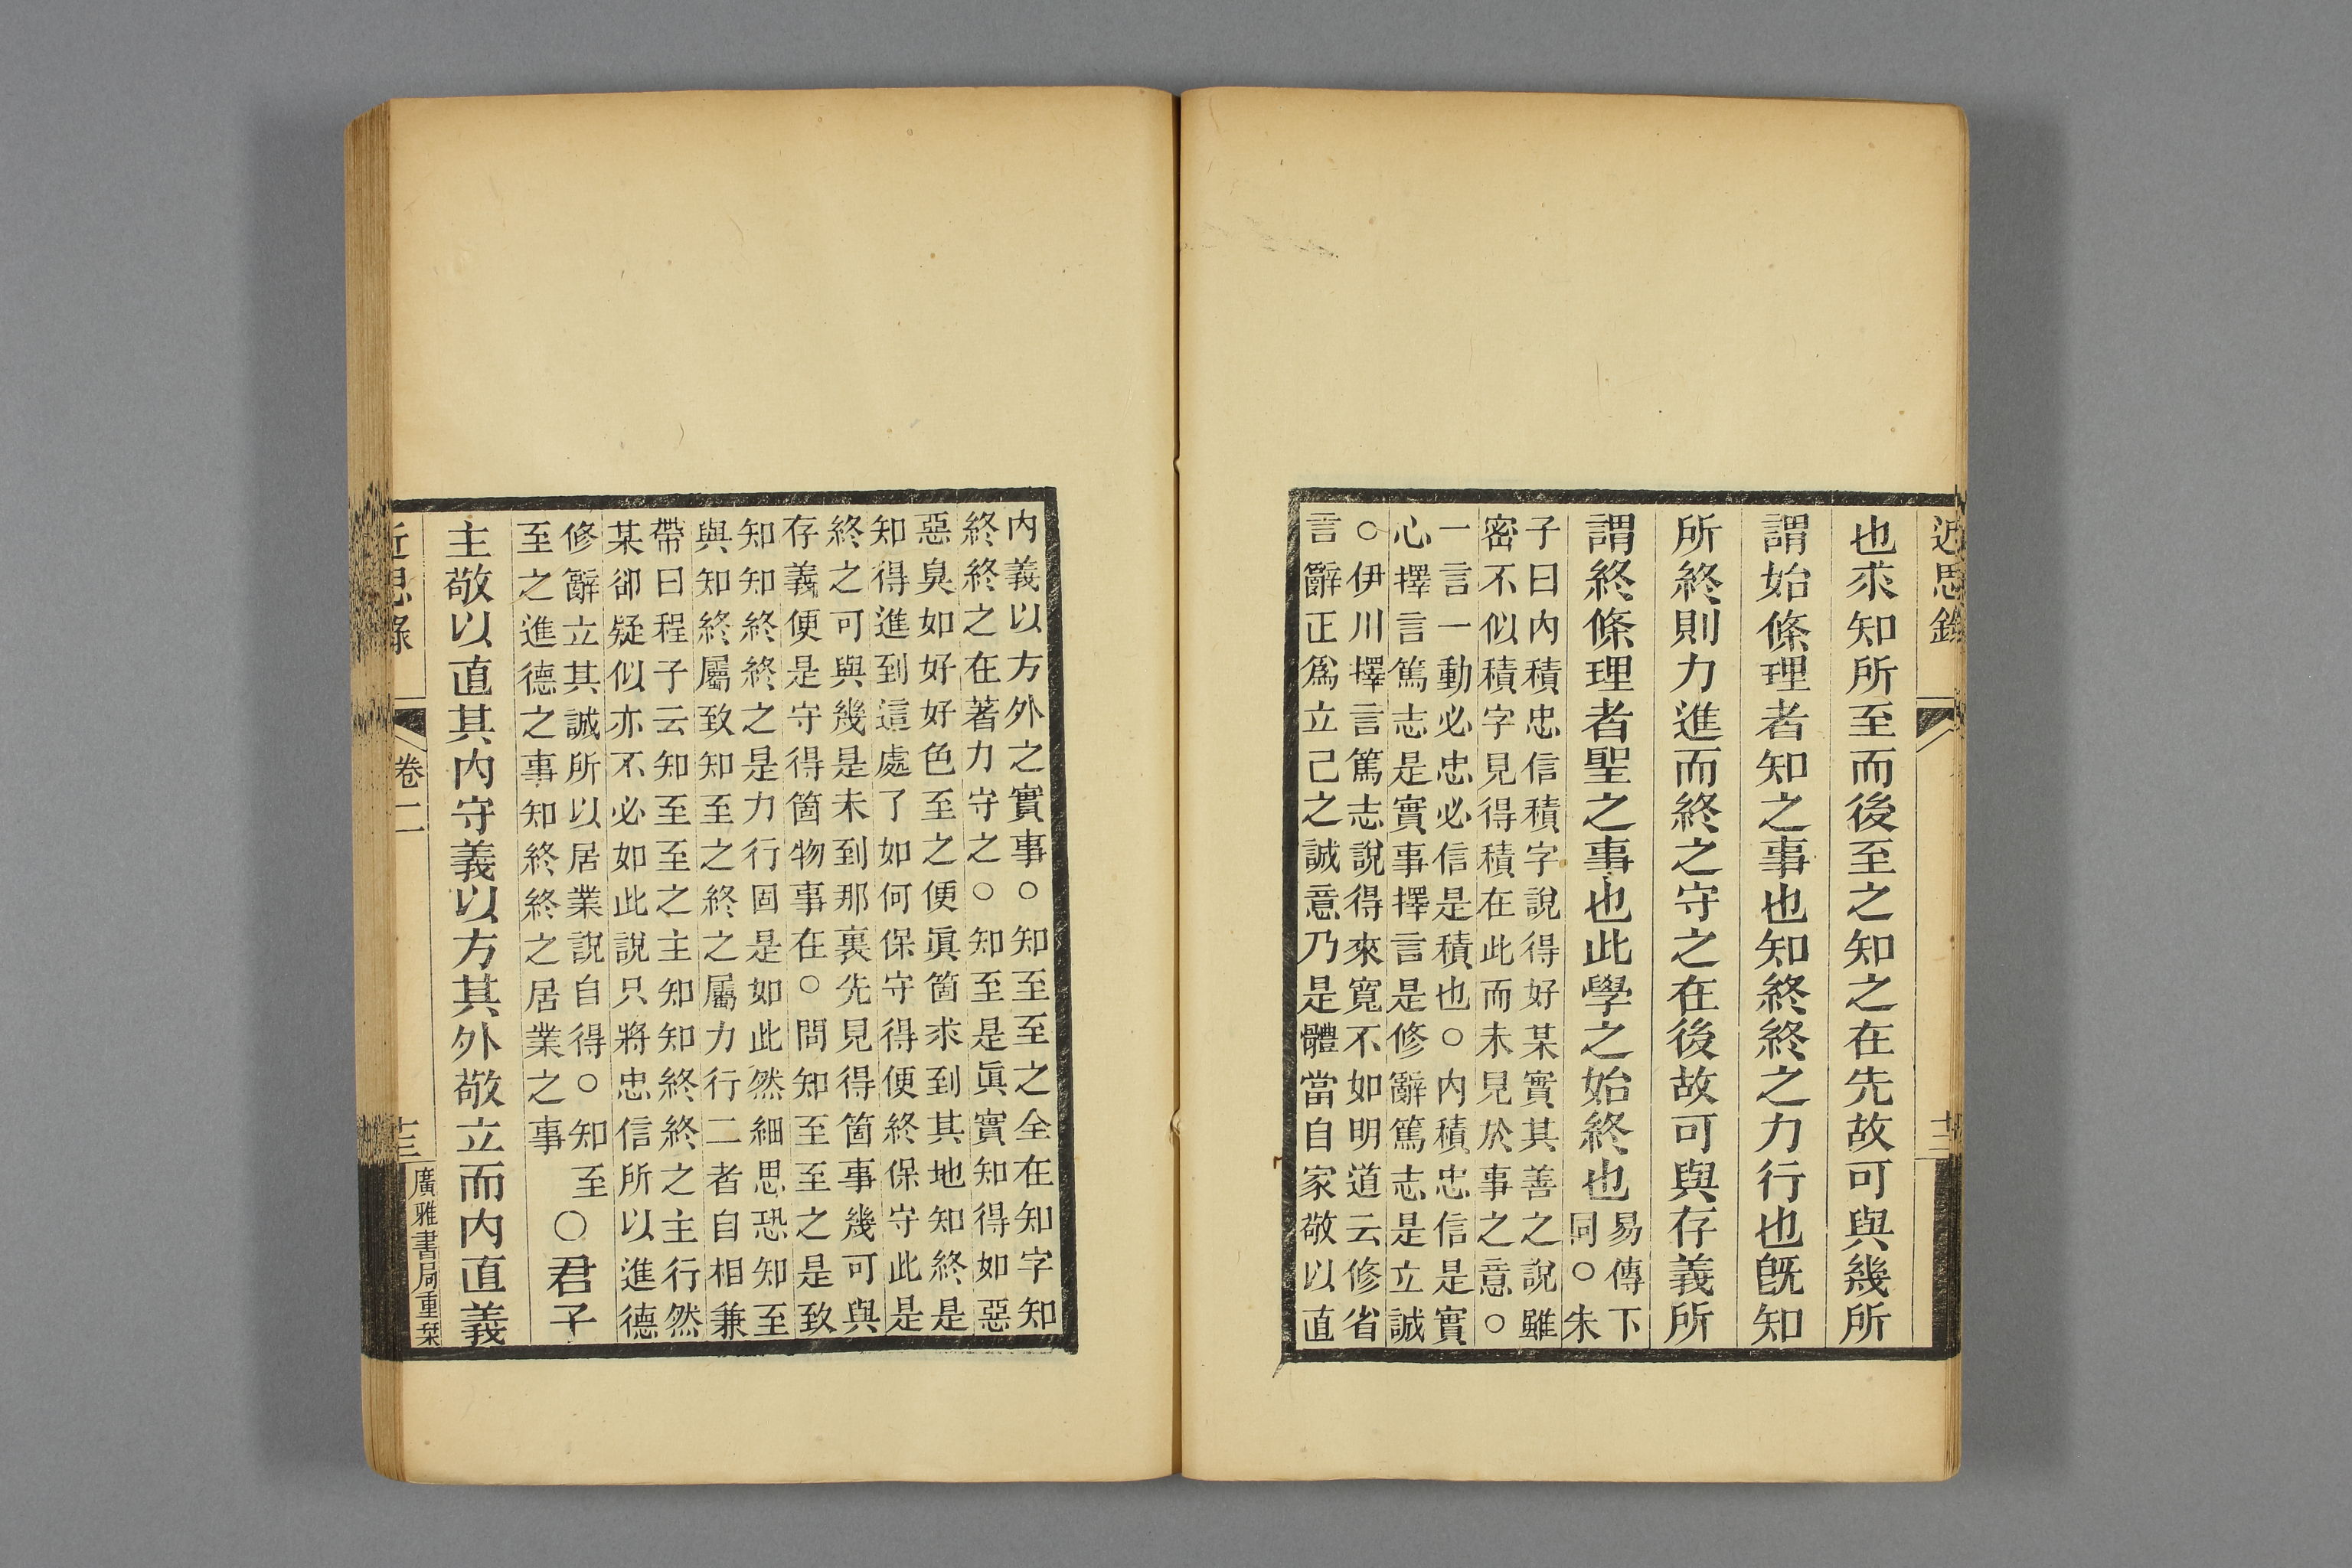 近思錄
也求知所至而後至之知之在先故可與幾所
謂始條理者知之事也知終終之力行也旣知
所終則力進而終之守之在後故可與存義所
謂終條理者聖之事也此學之始終也
易傳下
同○朱
子曰內積忠信積字說得好某實其善之說雖
密不似積字見得積在此而未見於事之意○
一言一動必忠必信是積也○內積忠信是實
心擇言篤志是實事擇言是修辭篤志是立誠
○伊川擇言篤志說得來寬不如明道云修省
言辭正爲立己之誠意乃是體當自家敬以直
內義以方外之實事○知至至之全在知字知
終終之在著力守之○知至是眞實知得如惡
惡臭如好好色至之便眞箇求到其地知終是
知得進到這處了如何保守得便終保守此是
終之可與幾是未到那裏先見得箇事幾可與
存義便是守得箇物事在○問知至至之是致
知知終終之是力行固是如此然細思恐知至
與知終屬致知至之終之屬力行二者自相兼
帶曰程子云知至至之主知知終終之主行然
某卻疑似亦不必如此說只將忠信所以進德
修辭立其誠所以居業說自得○知至
至之進德之事知終終之居業之事
○君子
主敬以直其內守義以方其外敬立而內直義
近思錄
卷二
十三
廣雅書局重栞